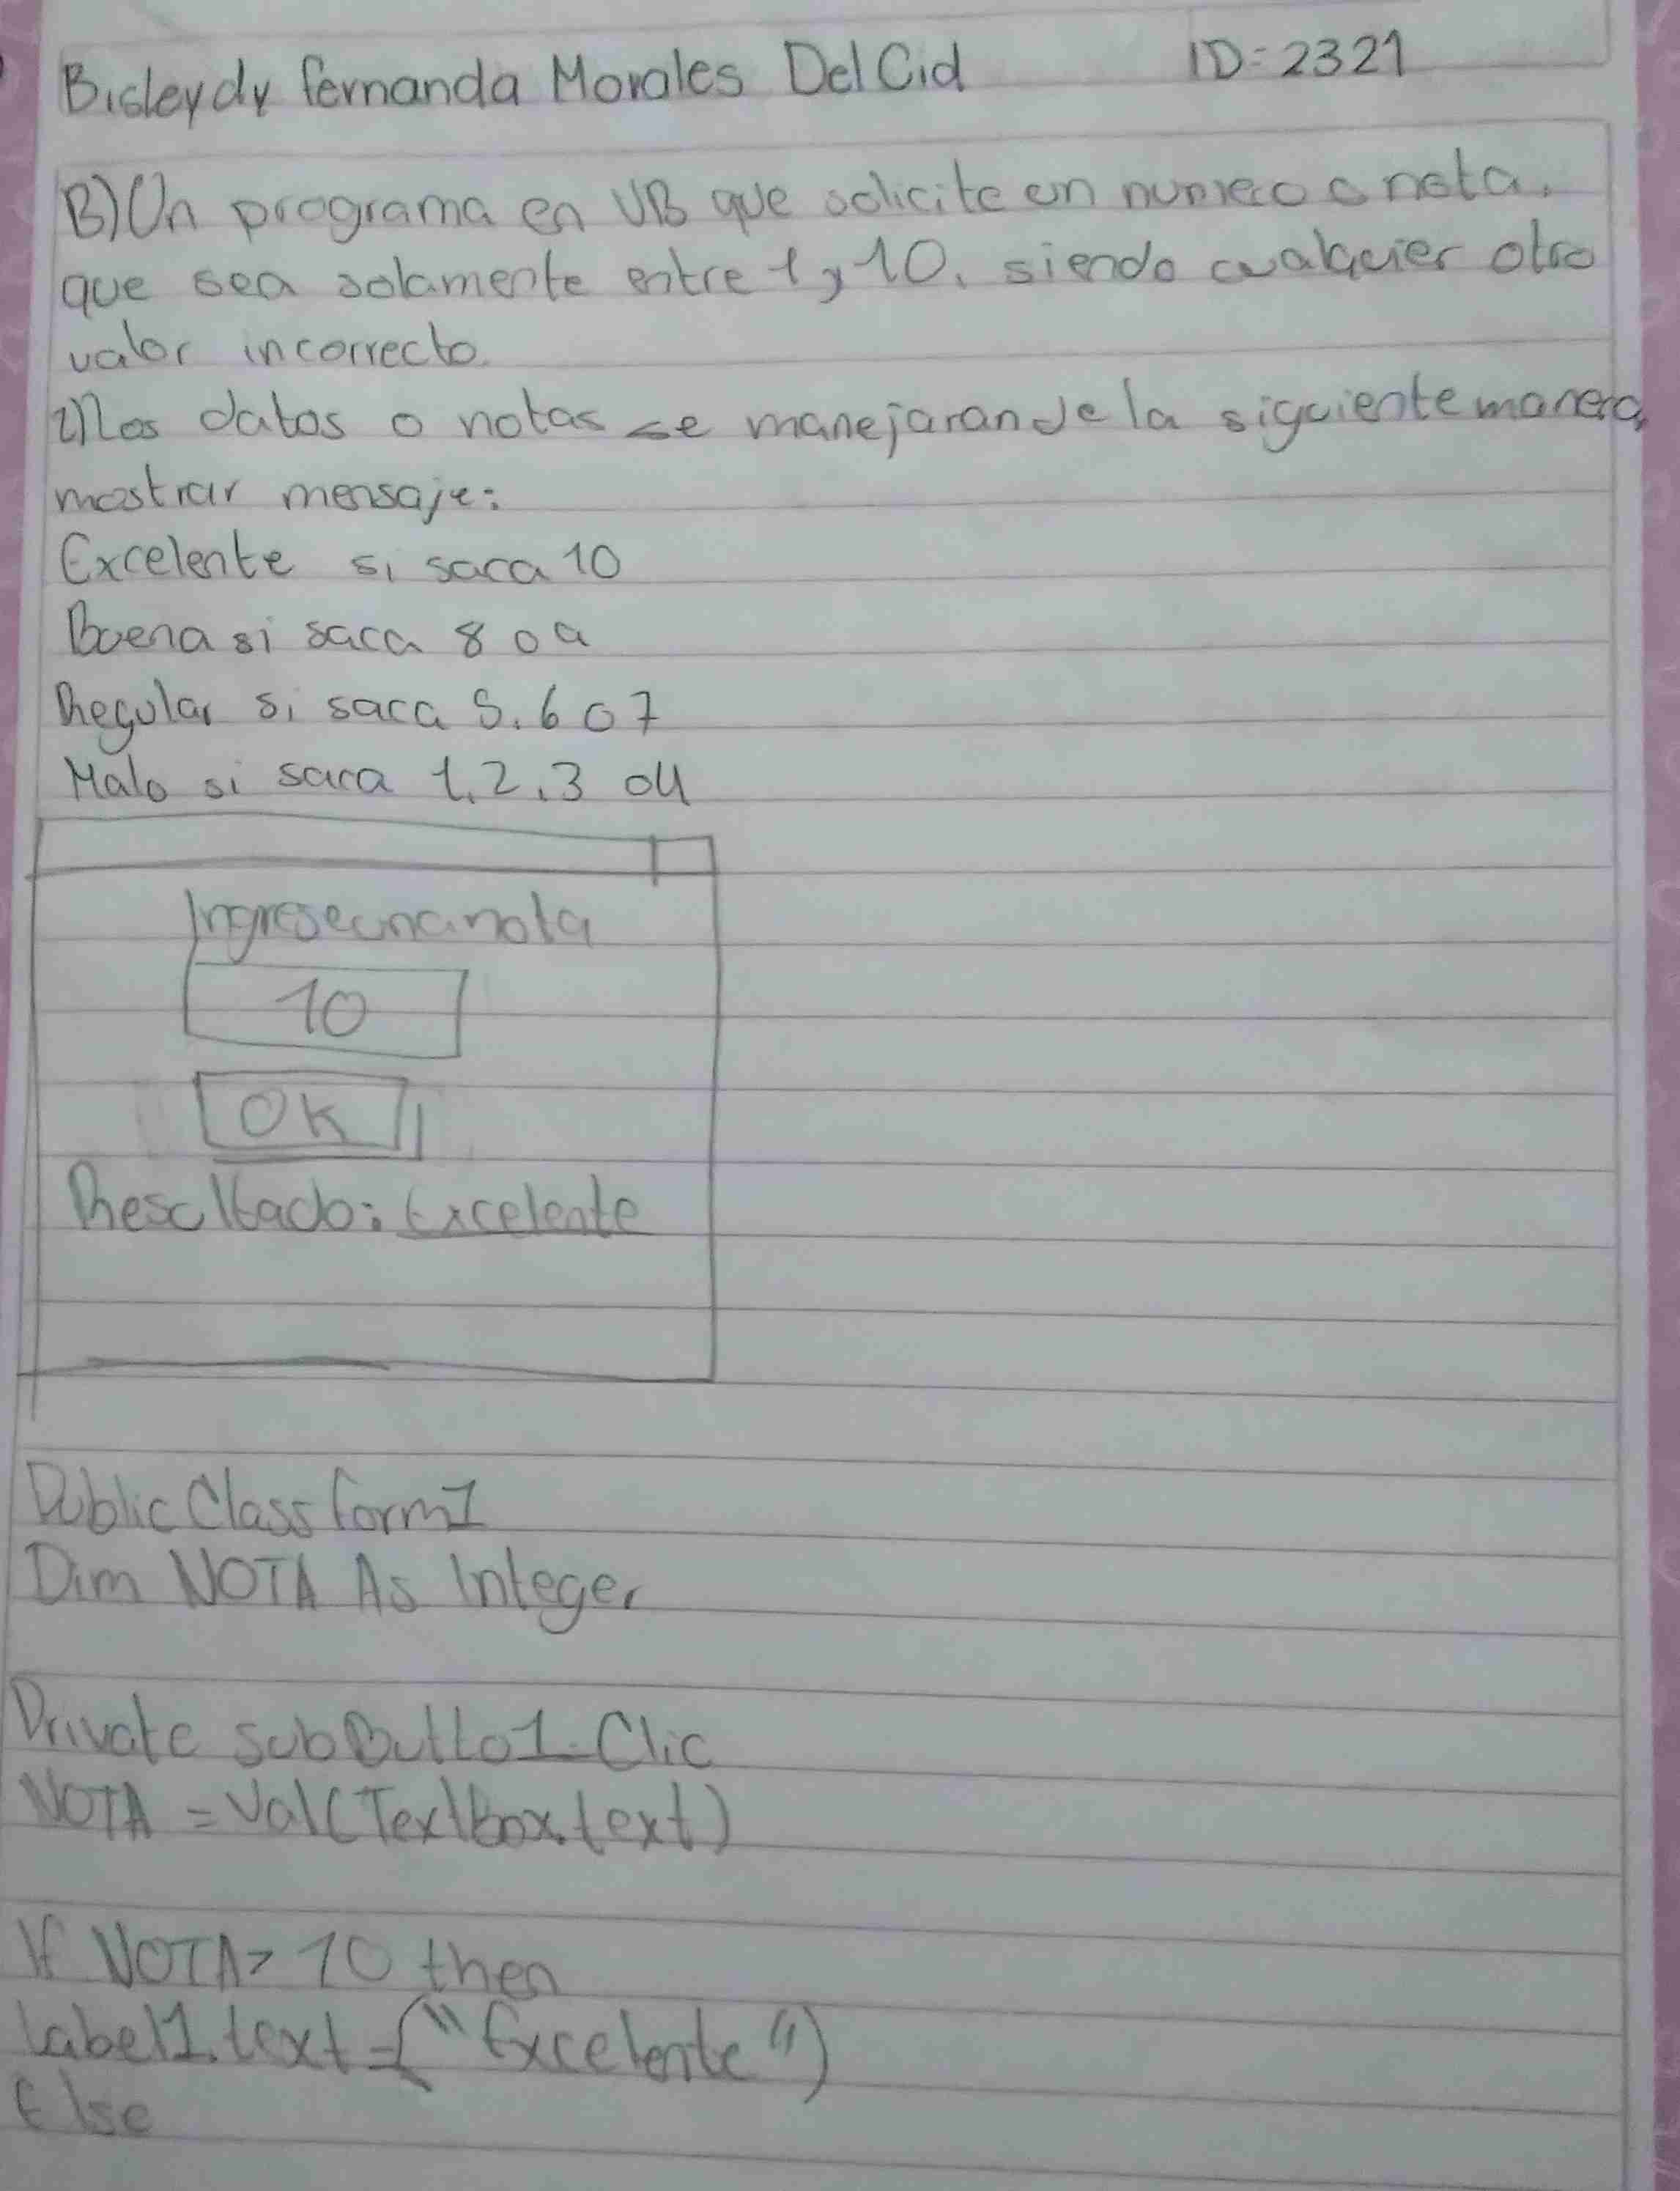 Bisleydy fernanda Morales Del Cid ID=2321
B) Un programa en VB que solicite un numero o nota.
que sea solamente entre 1 y 10. siendo cualquier otro
valor incorrecto.
los datos o notas se manejaran de la siguiente manera,
mostrar mensaje:
Excelente si saca 10
Buena si saca 8 o 9
Regular si saca 5.6 o 7
Malo si saca 1,2,3 o 4
Ingrese una nota
10
OK
Resultado: Excelente
Public Class form1
Dim NOTA As Integer
Private sub Butto1-Clic
NOTA = Val(Textbox.text)
If NOTA> 10 then
label1.text = ("Excelente")
Else